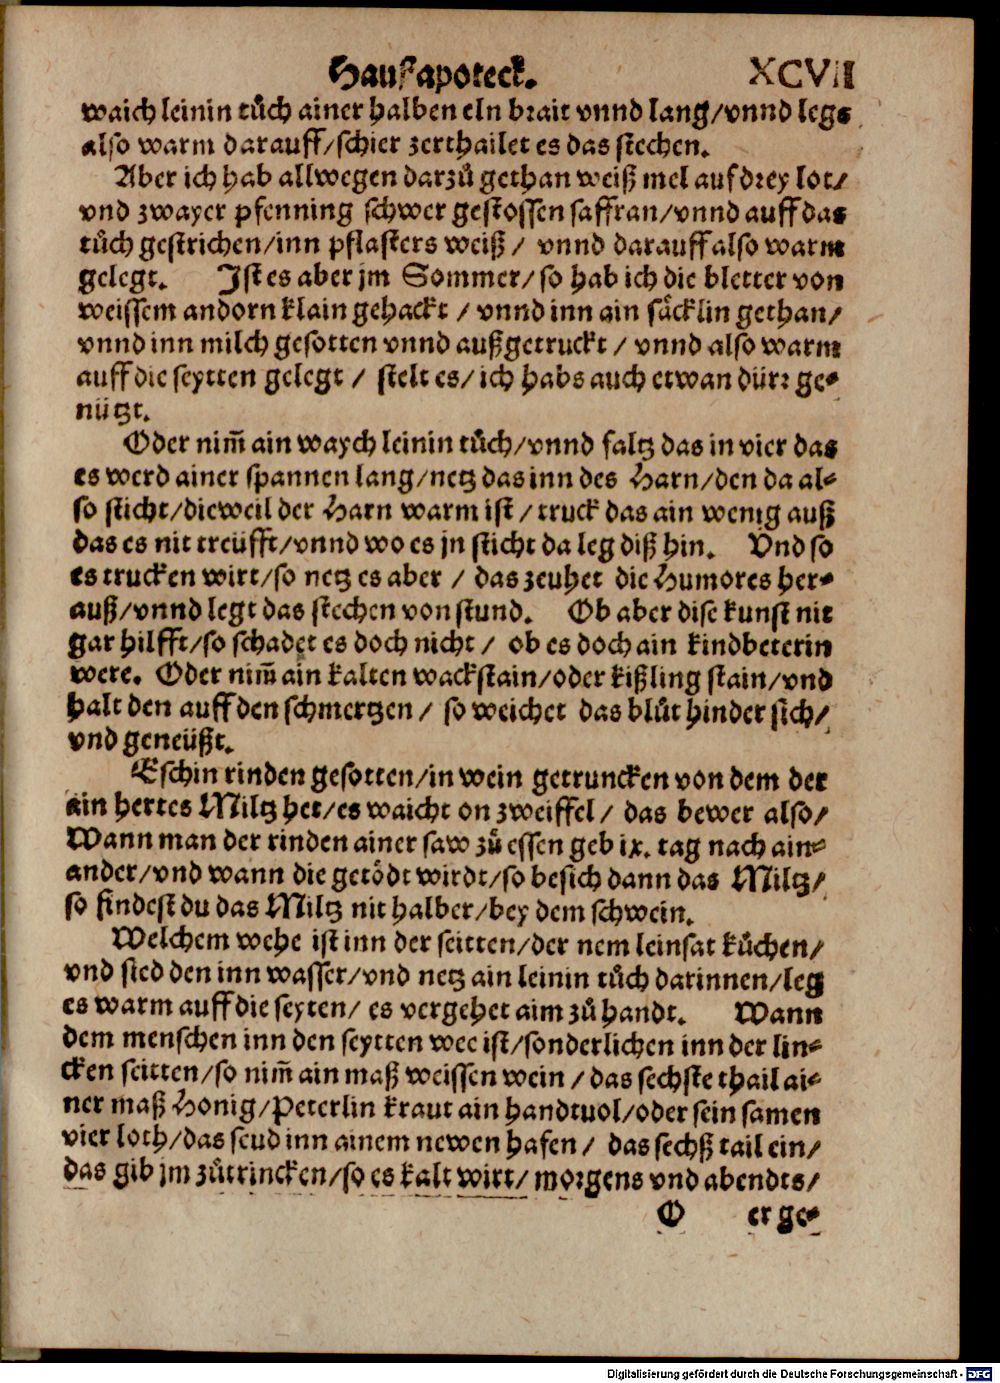 Hauſzapoteck. XCVII
waich leinin tuͦch ainer halben eln brait vnnd lang/vnnd legs
also warm darauff/schier zerthailet es das stechen.
Aber ich hab allwegen darzuͦ gethan weiß mel auf drey lot/
vnd zwayer pfenning schwer gestossen saffran/vnnd auff das
tuͦch gestrichen/inn pflasters weiß / vnnd darauff also warm
gelegt. Ist es aber jm Sommer/so hab ich die bletter von
weissem andorn klain gehackt / vnnd inn ain saͤcklin gethan/
vnnd inn milch gesotten vnnd außgetruckt / vnnd also warm
auff die seytten gelegt / stelt es/ich habs auch etwan dürr ge-
nützt.
Oder nim̃ ain waych leinin tuͦch/vnnd faltz das in vier das
es werd ainer spannen lang/netz das inn des Harn/den da al-
so sticht/dieweil der Harn warm ist / truck das ain wenig auß
das es nit treüfft/vnnd wo es jn sticht da leg diß hin. Vnd so
es trucken wirt/so netz es aber / das zeuhet die Humores her-
auß/vnnd legt das stechen von stund. Ob aber dise kunst nit
gar hilfft/so schadet es doch nicht / ob es doch ain kindbeterin
were. Oder nim̃ ain kalten wackstain/oder kißling stain/vnd
halt den auff den schmertzen / so weichet das bluͦt hinder sich/
vnd geneüßt.
Eschin rinden gesotten/in wein getruncken von dem der
ain hertes Miltz het/es waicht on zweiffel / das bewer also/
Wann man der rinden ainer saw zuͦ essen geb ix. tag nach ain-
ander/vnd wann die getödt wirdt/so besich dann das Miltz/
so findest du das Miltz nit halber/bey dem schwein.
Welchem wehe ist inn der seitten/der nem leinsat kuͦchen/
vnd sied den inn wasser/vnd netz ain leinin tuͦch darinnen/leg
es warm auff die seyten/ es vergehet aim zuͦ handt. Wann
dem menschen inn den seytten wee ist/sonderlichen inn der lin-
cken seitten/so nim̃ ain maß weissen wein / das sechste thail ai-
ner maß Honig/Peterlin kraut ain handtuol/oder sein samen
vier loth/das seud inn ainem newen hafen / das sechß tail ein/
das gib jm zuͦtrincken/so es kalt wirt/ morgens vnd abendts/
O er ge-
Digitalisierung gefördert durch die Deutsche Forschungsgemeinschaft - DFG